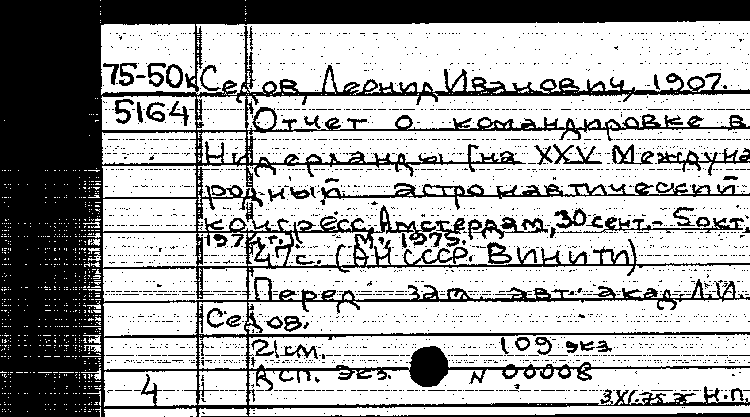 75-50к Седов, Леонид Иванович, 1907.
5164 Отчет о командировке в
Нидерланды [на XXV Междуна
родный астронавтический
конгресс, Амстердам, 30 сент.- 5 окт.
1974 г.]. М., 1975.
47с. (АН СССР. ВИНИТИ)
Перед загл. авт.: акад. Л.И.
Седов.
21 см. 109 экз.
Дсп. Экз. N 00008
4
3.XI.75 Н.П.